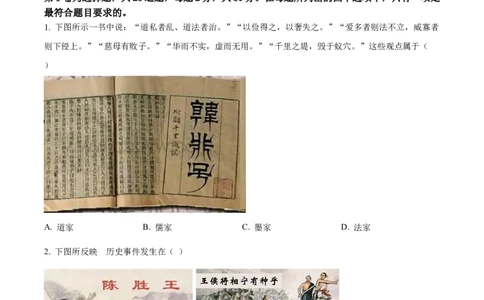 最符合题目要求的。
1. 下图所示一书中说：“道私者乱、道法者治。”“以俭得之，以奢失之。”“爱多者则法不立，威寡者
则下侵上。”“慈母有败子。”“华而不实，虚而无用。”“千里之堤，毁于蚁穴。”这些观点属于（
）
韩非子
A. 道家 B. 儒家 C. 墨家 D. 法家
2. 下图所反映 历史事件发生在（ ）
陈胜王
王侯将相宁有种乎